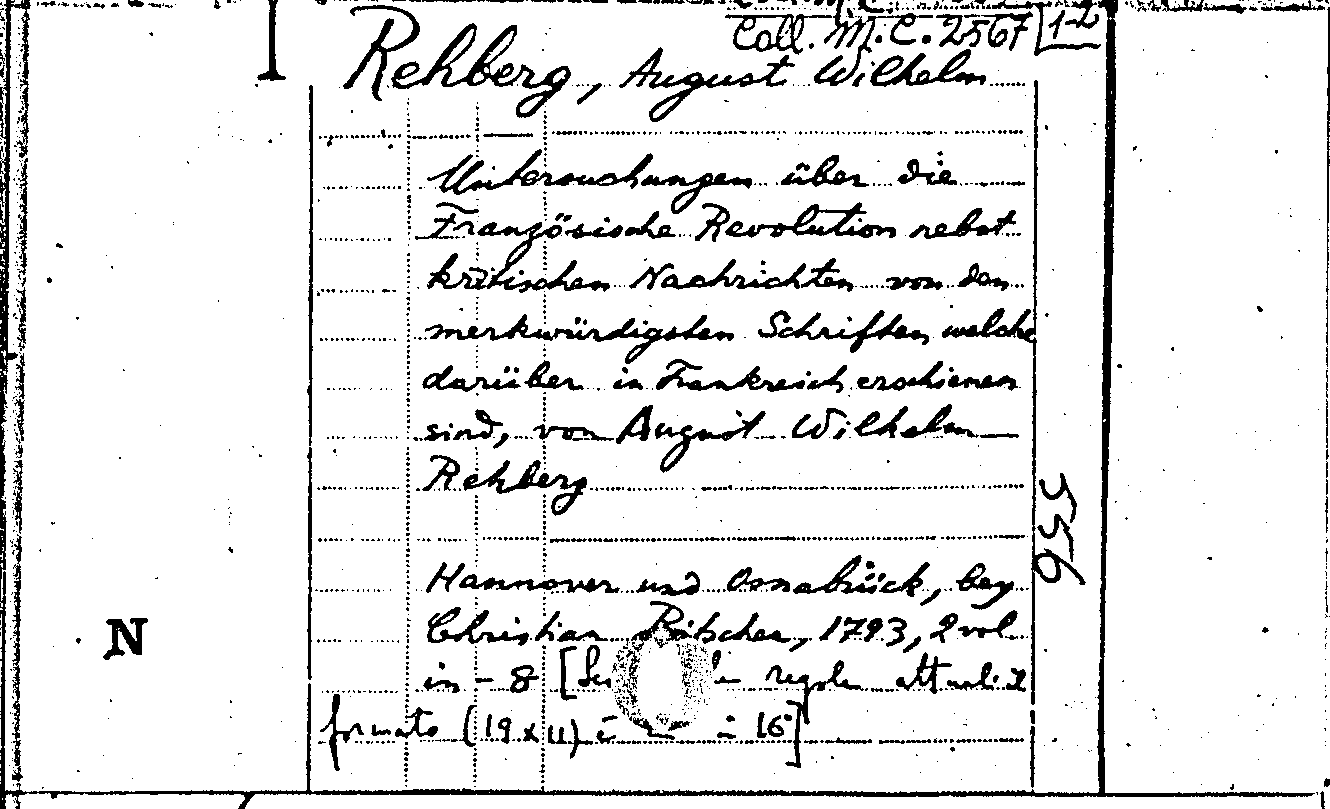 Coll. M.C. 2567 1-2
Rehberg, August Wilhelm
Untersuchungen über die
Französische Revolution nebst
kritischen Nachrichten von den
merkwürdigsten Schriften welche
darüber in Frankreich erschienen
sind, von August Wilhelm
Rehberg
556
Hannover und Osnabrück, bey
Christian Ritscher, 1793, 2 vol.
N
in-8 [ regole attuali il
formato (19 x 11) è in 16°]